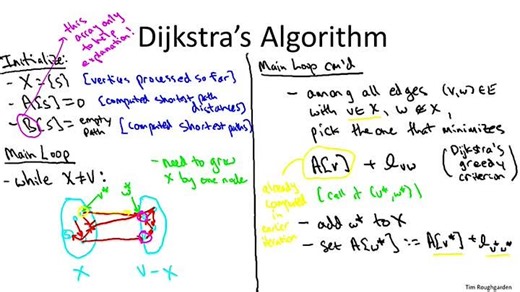 Dijkstra's Algorithm
this
array only
to help
explanation!
Initialize:
- X = {s} [vertices processed so far]
- A[s] = 0 [computed shortest path
distances]
- B[s] = empty path [computed shortest paths]
Main Loop
- while X ≠ V:
- need to grow
X by one node
v*
w*
s
X
V - X
Main Loop cont'd
- among all edges (v,w) ∈ E
with v ∈ X, w ∉ X,
pick the one that minimizes
A[v] + lvw
(Dijkstra's
greedy
criterion)
already
computed
in
earlier
iteration
[call it (v*, w*)]
- add w* to X
- set A[w*] := A[v*] + lv*w*
Tim Roughgarden